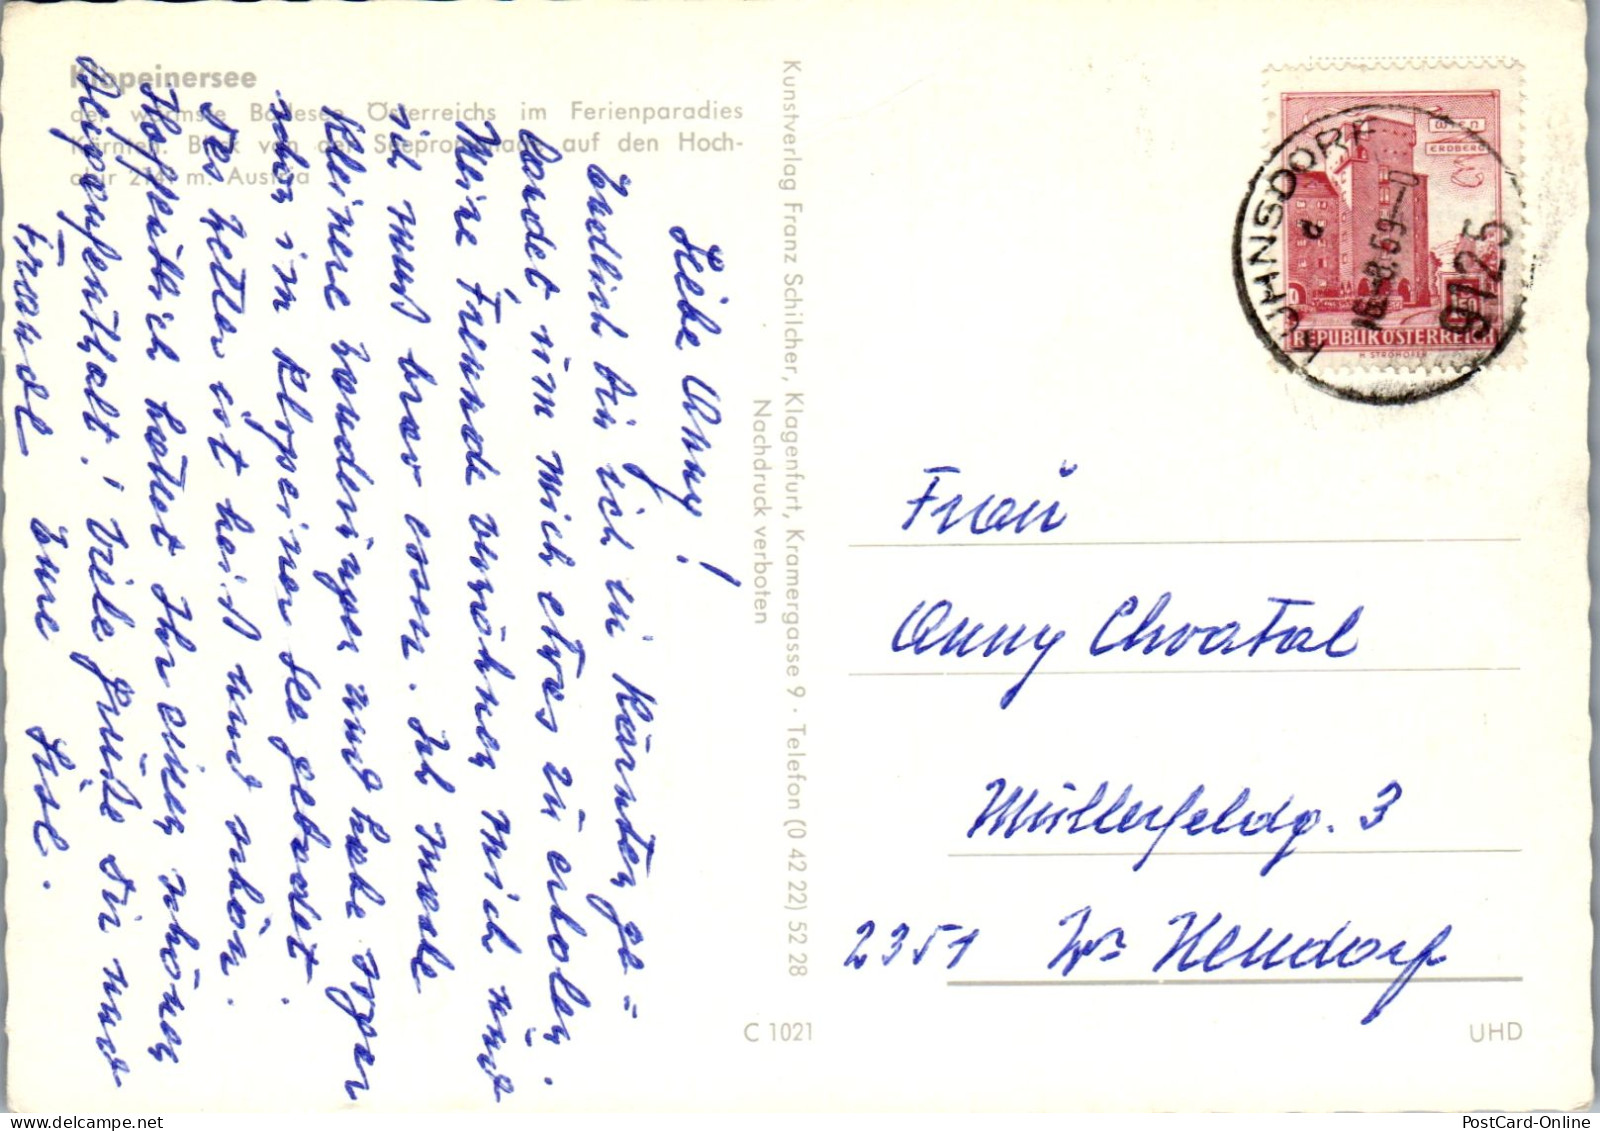 Klopeinersee
der wärmste Badesee Österreichs im Ferienparadies
Kärnten. Blick von der Seepromenade auf den Hoch-
obir 2141 m. Austria
Liebe Anny!
Endlich bin ich in Kärnten ge=
landet um mich etwas zu erholen.
Meine Freunde verwöhnen mich und
ich muß brav essen. Ich mache
kleinere Wanderungen und habe sogar
schon im Klopeiner See gebadet.
Das Wetter ist heiß und schön.
Hoffentlich hattet Ihr einen schönen
Skiaufenthalt! Viele Grüße Dir und
Traudl Eure Lisl.
Kunstverlag Franz Schilcher, Klagenfurt, Kramergasse 9 · Telefon (0 42 22) 52 28
Nachdruck verboten
C 1021
UHD
WIEN
ERDBERG
1.50
REPUBLIK ÖSTERREICH
H. STROHOFER
KÜHNSDORF
a
9125
Frau
Anny Chvatal
Müllerfeldg. 3
2351 Wr. Neudorf
PostCard-Online